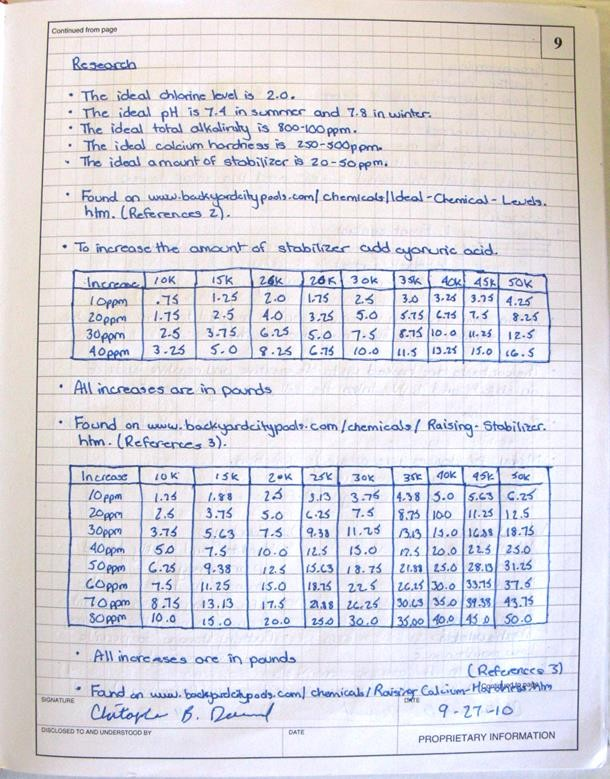 Continued from page
9
Research
• The ideal chlorine level is 2.0.
• The ideal pH is 7.4 in summer and 7.8 in winter.
• The ideal total alkalinity is 800-100ppm.
• The ideal calcium hardness is 250-500ppm.
• The ideal amount of stabilizer is 20-50ppm.
• Found on www.backyardcitypools.com/chemicals/Ideal-Chemical-Levels.
htm. (References 2).
• To increase the amount of stabilizer add cyanuric acid.
Increase 10K 15K 20K 30K 35K 40K 45K 50K
10ppm .75 1.25 2.0 1.75 2.5 3.0 3.25 3.75 4.25
20ppm 1.75 2.5 4.0 3.25 5.0 5.75 6.75 7.5 8.25
30ppm 2.5 3.75 6.25 5.0 7.5 8.75 10.0 11.25 12.5
40ppm 3.25 5.0 8.25 6.75 10.0 11.5 13.25 15.0 16.5
• All increases are in pounds
• Found on www.backyardcitypools.com/chemicals/Raising-Stabilizer.
htm. (References 3).
Increase 10K 15K 20K 25K 30K 35K 40K 45K 50K
10ppm 1.25 1.88 2.5 3.13 3.75 4.38 5.0 5.63 6.25
20ppm 2.5 3.75 5.0 6.25 7.5 8.75 10.0 11.25 12.5
30ppm 3.75 5.63 7.5 9.38 11.25 13.13 15.0 16.88 18.75
40ppm 5.0 7.5 10.0 12.5 15.0 17.5 20.0 22.5 25.0
50ppm 6.25 9.38 12.5 15.63 18.75 21.88 25.0 28.13 31.25
60ppm 7.5 11.25 15.0 18.75 22.5 26.25 30.0 33.75 37.5
70ppm 8.75 13.13 17.5 21.88 26.25 30.63 35.0 39.38 43.75
80ppm 10.0 15.0 20.0 25.0 30.0 35.00 40.0 45.0 50.0
• All increases are in pounds
(References 3)
• Found on www.backyardcitypools.com/chemicals/Raising-Calcium-Hardness.htm
SIGNATURE DATE
B. 9-27-10
DISCLOSED TO AND UNDERSTOOD BY DATE PROPRIETARY INFORMATION